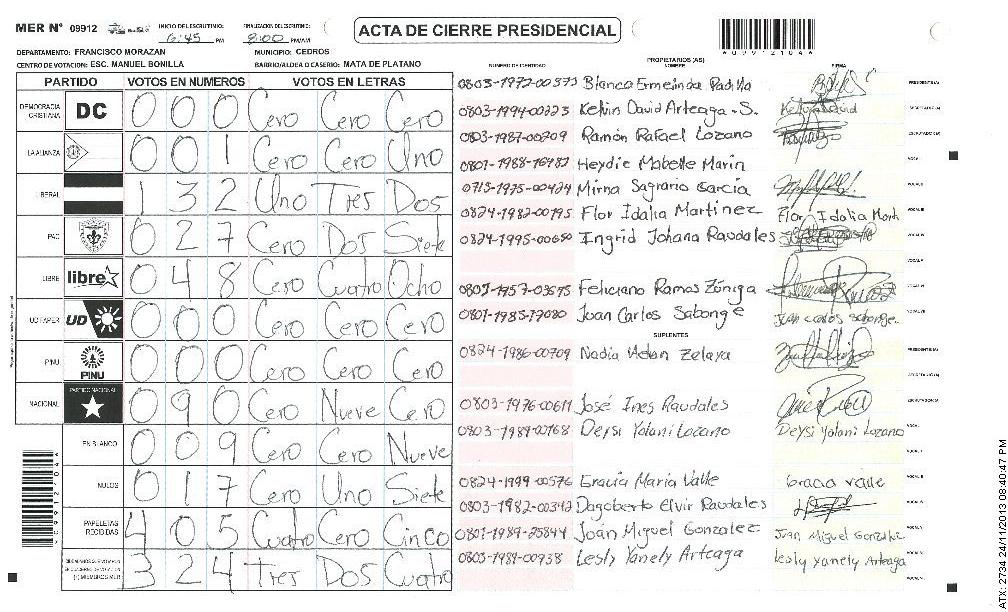 MER Nº 09912
INICIO DE ESCRUTINIO: 6:45 PM
FINALIZACION DE ESCRUTINIO: 8:00 PM/AM
ACTA DE CIERRE PRESIDENCIAL
A09912104A
DEPARTAMENTO: FRANCISCO MORAZAN
MUNICIPIO: CEDROS
CENTRO DE VOTACION: ESC. MANUEL BONILLA
BARRIO/ALDEA O CASERIO: MATA DE PLATANO
PARTIDO VOTOS EN NUMEROS VOTOS EN LETRAS
DEMOCRACIA CRISTIANA DC 0 0 0 Cero Cero Cero
LA ALIANZA 0 0 1 Cero Cero Uno
LIBERAL 1 3 2 Uno Tres Dos
PAC 0 2 7 Cero Dos Siete
LIBRE libre 0 4 8 Cero Cuatro Ocho
UD FAPER UD 0 0 0 Cero Cero Cero
PINU PINU 0 0 0 Cero Cero Cero
NACIONAL PARTIDO NACIONAL 0 9 0 Cero Nueve Cero
EN BLANCO 0 0 9 Cero Cero Nueve
NULOS 0 1 7 Cero Uno Siete
PAPELETAS RECIBIDAS 4 0 5 Cuatro Cero Cinco
3 2 4 Tres Dos Cuatro
PROPIETARIOS (AS)
NUMERO DE IDENTIDAD NOMBRE FIRMA
Blanca Ermeinda Padilla PRESIDENTE(A)
0803-1994-00223 Kelvin David Arteaga-S. SECRETARIO(A)
0803-1987-00209 Ramón Rafael Lozano ESCRUTADOR(A)
Heydie Mabelle Marin VOCAL I
0715-1975-00424 Mirna Sagrario Garcia VOCAL II
0824-1982-00195 Flor Idalia Martinez Flor Idalia VOCAL III
0824-1995-00650 Ingrid Johana Raudales VOCAL IV
Feliciano Ramos Zúniga VOCAL VI
0801-1985-17080 Juan Carlos Sabonge Juan carlos Sabonge. VOCAL VII
SUPLENTES
0824-1986-00709 Nadia Zelaya PRESIDENTE(A)
SECRETARIO(A)
0803-1976-00611 José Ines Raudales ESCRUTADOR(A)
0803-1989-00168 Deysi Yolani Lozano Deysi Yolani Lozano VOCAL I
0824-1999-00576 Gracia Maria Valle Gracia Valle
0803-1982-00342 Dagoberto Elvir Raudales
0801-1989-25844 Joan Miguel Gonzalez Juan Miguel Gonzalez
0803-1989-00938 Lesly Yanely Arteaga Lesly Yanely Arteaga
ATX: 2734 24/11/2013 08:40:47 PM